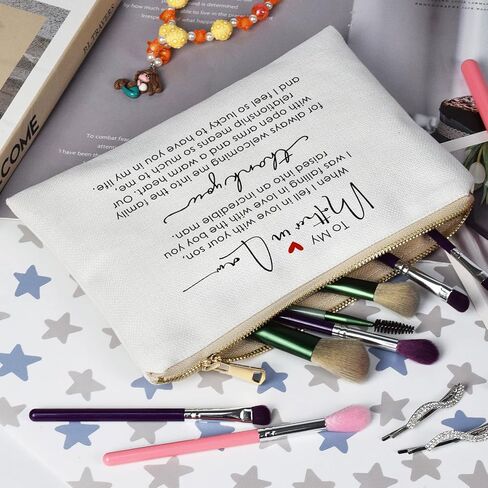 To My
Mother in Law
When I fell in love with your son,
I was falling in love with the boy you
raised into an incredible man.
thank you
for always welcoming me into the family
with open arms and a warm heart. Our
relationship means so much to me.
and I feel so lucky to have you in my life.
COME